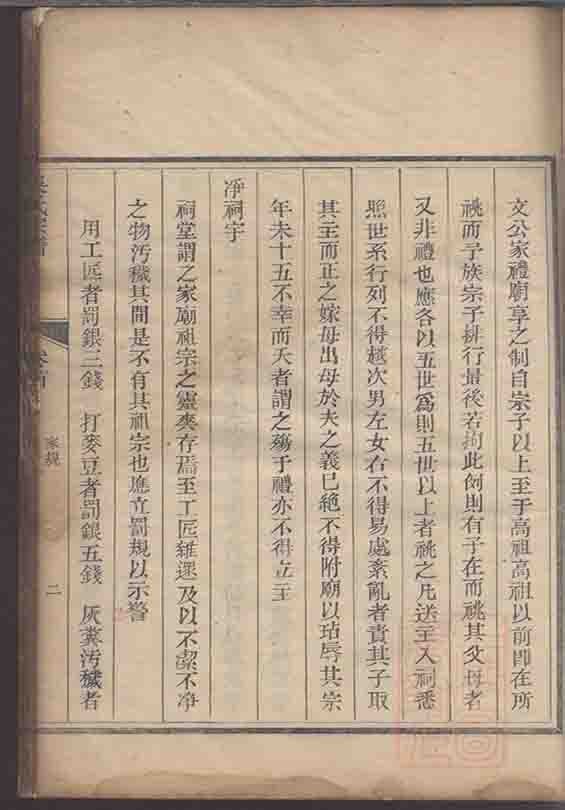 文公家禮廟享之制自宗子以上至于高祖高祖以前即在所
祧而予族宗子排行最後若拘此例則有子在而祧其父母者
又非禮也應各以五世爲則五世以上者祧之凡送主入祠悉
照世系行列不得越次男左女右不得易處紊亂者責其子取
其主而正之嫁母出母於夫之義已絶不得附廟以玷辱其宗
年未十五不幸而夭者謂之殤于禮亦不得立主
淨祠宇
祠堂謂之家廟祖宗之靈爽存焉至工匠雜遝及以不潔不净
之物污穢其間是不有其祖宗也應立罰規以示警
用工匠者罰銀三錢　打麥豆者罰銀五錢　灰糞污穢者
氏宗譜
卷首
家規
二